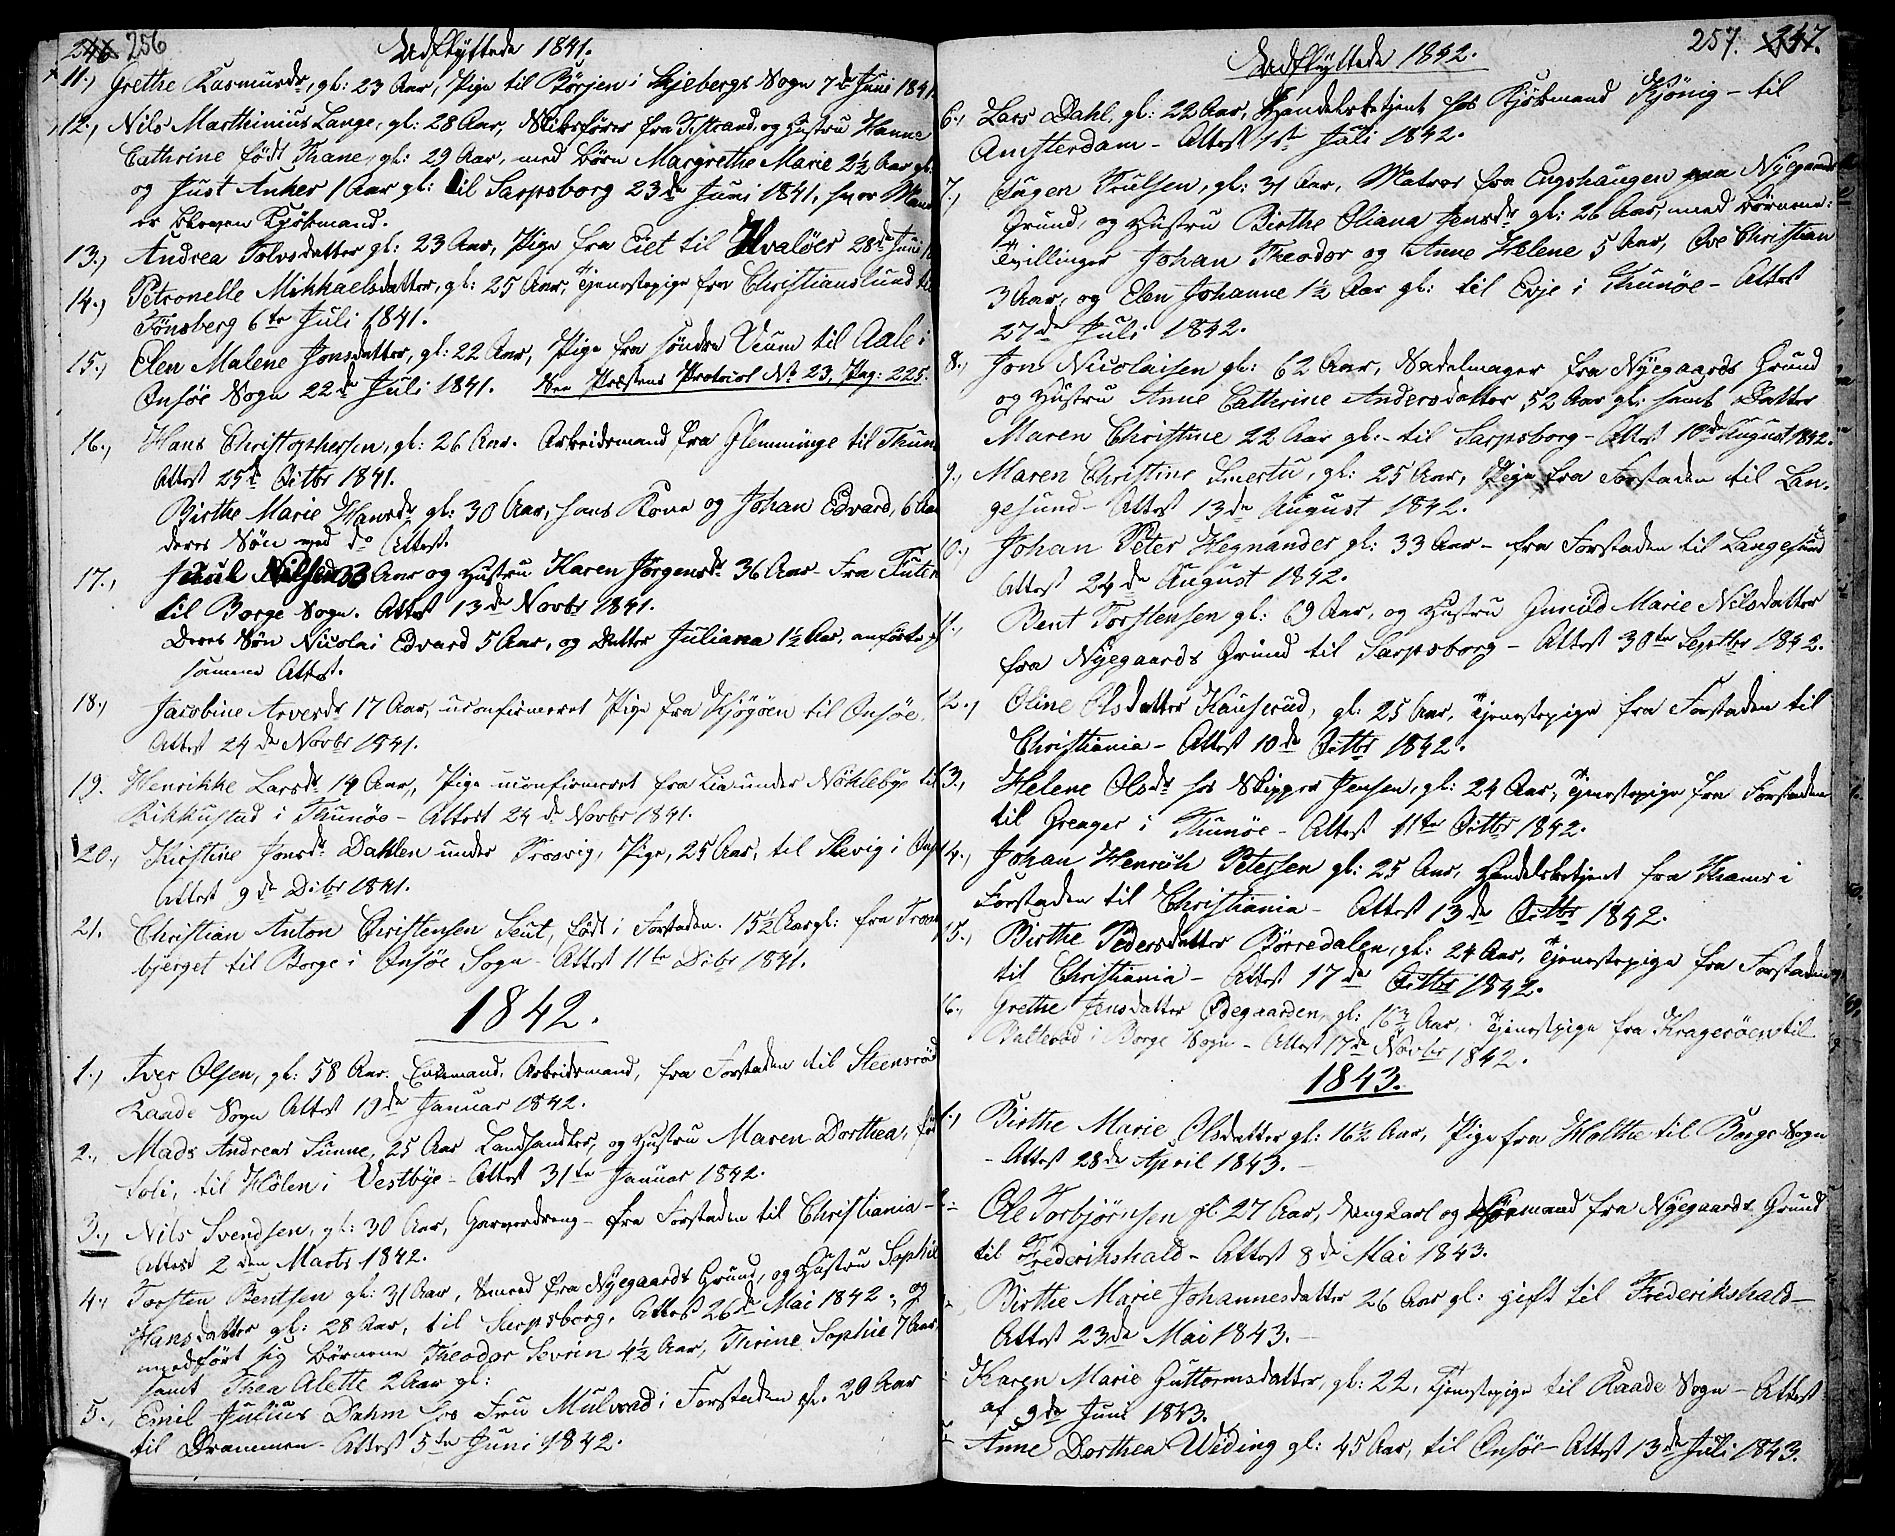 246 256 Udflyttede 1841.
11., Grethe Rasmusdr, gl: 23 Aar, Pige til Börjen i Skjebergs Sogn 7de Juni 1841.
12., Nils Marthinius Lange, gl: 28 Aar, Skibsförer fra Tistrand, og Hustru Hanne
Cathrine födt Thane, gl: 29 Aar, med Börn Margrethe Marie 2½ Aar gl:
og Just Anker 1 Aar gl: til Sarpsborg 23de Juni 1841, hvor Manden
er bleven Kjöbmand.
13., Andrea Tolvsdatter gl: 23 Aar, Pige fra Eiet til Hvalöer 28de Juni
14., Petronelle Mikkaelsdatter, gl: 25 Aar, Tjenestepige fra Christianslund til
Tönsberg 6te Juli 1841.
15., Elen Malene Jonsdatter, gl: 22 Aar, Pige fra söndre Veum til Aale i
Onsöe Sogn 22de Juli 1841. See Præstens Protocol No 23, Pag: 225.
16., Hans Christophersen, gl: 26 Aar. Arbeidsmand fra Glemminge til Thun
Attest 25de Octbr 1841.
Birthe Marie Hansdr gl: 30 Aar, hans Kone og Johan Edvard, 6 Aar
deres Sön med do Attest.
17., Nilsen 33 Aar og Hustru Karen Jörgensdr 36 Aar - fra
til Borge Sogn. Attest 13de Novbr 1841.
Deres Sön Nicolai Edvard 5 Aar, og Datter Juliana 1½ Aar, anförte p
samme Attest.
18., Jacobine Arvesdr 17 Aar, uconfirmeret Pige fra Kjögöen til Onsöe
Attest 24de Novbr 1841.
19. Henrikke Larsdr 19 Aar, Pige uconfirmeret fra Lia under Nöklebye til
Rikkustad i Thunöe - Attest 24de Novbr 1841.
20., Kirstine Jonsdr Dahlen under Krosvig, Pige, 25 Aar, til Slevig i Ons
Attest 9de Decbr 1841.
21. Christian Anton Christensen Leut, födt i Forstaden. 15½ Aar gl: fra Trom
bjerget til Borge i Onsöe Sogn - Attest 11te Decbr 1841.
1842.
1., Iver Olsen, gl: 58 Aar. Enkemand, Arbeidsmand, fra Forstaden til Steensröd
Raade Sogn Attest 19de Januar 1842.
2., Mads Andreas Sunne, 25 Aar Landhandler, og Hustru Maren Dorthea, fö
Soli, til Hölen i Vestbye - Attest 31te Januar 1842.
3., Nils Svendsen, gl: 30 Aar, Garverdreng - fra Forstaden til Christiania -
Attest 2den Marts 1842.
4., Torsten Bentsen gl: 31 Aar, Smed fra Nyegaards Grund, og Hustru Sophie
Hansdatter gl: 28 Aar, til Sarpsborg, Attest 26de Mai 1842, og
medfört sig Börnene Theodor Severin 4½ Aar, Thrine Sophie 7 Aar,
samt Thea Alette 2 Aar gl:
5., Emil Julius Dahm hos Fru Mulvad i Forstaden gl. 20 Aar
til Drammen - Attest 5te Juni 1842.
Udflyttede 1842. 257. 247.
6., Lars Dahl, gl: 22 Aar, Handelsbetjent hos Kjöbmand Kjönig - til
Amsterdam - Attest 1ste Juli 1842.
7., Eugen Trulsen, gl: 31 Aar, Matros fra Engshaugen paa Nyegaards
Grund, og Hustru Birthe Oliana Jensdr gl: 26 Aar, med Börnene:
Tvillinger Johan Theodor og Anne Helene 5 Aar, Ove Christian
3 Aar, og Elen Johanne 1½ Aar gl: til Evje i Thunöe - Attest
27de Juli 1842.
8., Jon Nicolaisen gl: 62 Aar, Sadelmager fra Nyegaards Grund
og Hustru Anne Cathrine Andersdatter 52 Aar gl: samt Datter
Maren Christine 22 Aar gl: - til Sarpsborg - Attest 10de August 1842.
9., Maren Christine Smertu, gl: 25 Aar, Pige fra Forstaden til Lan-
gesund - Attest 13de August 1842.
10., Johan Peter Hegnander gl: 33 Aar - fra Forstaden til Langesund
Attest 24de August 1842.
11., Bent Torstensen gl: 69 Aar, og Hustru Gunild Marie Nilsdatter
fra Nyegaards Grund til Sarpsborg - Attest 30te Septbr 1842.
12., Oline Olsdatter Hauserud, gl: 25 Aar, Tjenestepige fra Forstaden til
Christiania - Attest 10de Octbr 1842.
13., Helene Olsdr hos Skipper Jensen, gl: 24 Aar, Tjenestepige fra Forstaden
til Greager i Thunöe - Attest 11te Octbr 1842.
14., Johan Henrich Petersen gl: 25 Aar, Handelsbetjent fra Thams i
Forstaden til Christiania - Attest 13de Octbr 1842.
15., Birthe Pedersdatter Börredalen, gl: 24 Aar, Tjenestepige fra Forstaden
til Christiania - Attest 17de Octbr 1842.
16., Grethe Jensdatter Ödegaarden, gl: 16¾ Aar, Tjenestepige fra Krageröen til
Batteröd i Borge Sogn - Attest 17de Novbr 1842.
1843.
1., Birthe Marie Olsdatter gl: 16½ Aar, Pige fra Holthe til Borge Sogn
- Attest 28de April 1843. -
Ole Torbjörnsen gl 27 Aar, Ungkarl og Sömand fra Nyegaards Grund
til Frederikshald - Attest 8de Mai 1843.
Birthe Marie Johannesdatter 26 Aar gl: gift til Frederikshald -
Attest 23de Mai 1843. -
Karen Marie Guttormsdatter, gl: 22, Tjenestepige til Raade Sogn - Attest
af 9de Juni 1843.
Anne Dorthea Widing gl: 45 Aar, til Onsöe - Attest 13de Juli 1843.